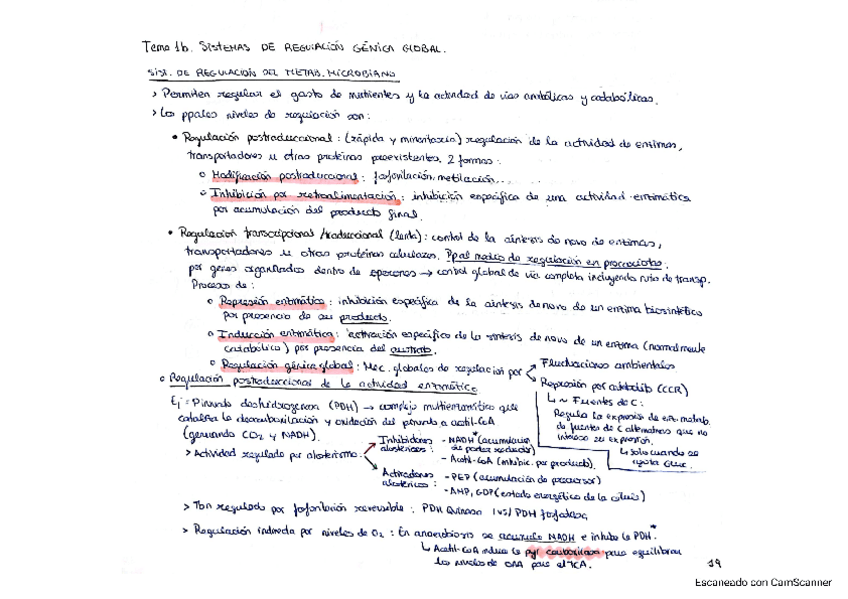 Tema 1b. SISTEMAS DE REGULACIÓN GÉNICA GLOBAL.
SIST. DE REGULACIÓN DEL METAB. MICROBIANO
> Permiten regular el gasto de nutrientes y la actividad de vías anabólicas y catabólicas.
> Los ppales niveles de regulación son:
• Regulación postraduccional: (rápida y minoritaria) regulación de la actividad de enzimas,
transportadores u otras proteínas preexistentes. 2 formas:
o Modificación postraduccional: fosforilación, metilación...
o Inhibición por retroalimentación: inhibición específica de una actividad enzimática
por acumulación del producto final.
• Regulación transcripcional/traduccional (lenta): control de la síntesis de novo de enzimas,
transportadores u otras proteínas celulares. Ppal medio de regulación en procariotas.
por genes organizados dentro de operones → control global de vía completa incluyendo ruta de transp.
Procesos de:
o Represión enzimática: inhibición específica de la síntesis de novo de un enzima biosintético
por presencia de su producto.
o Inducción enzimática: activación específica de la síntesis de novo de un enzima (normalmente
catabólico) por presencia del sustrato.
o Regulación génica global: Mec. globales de regulación por
Fluctuaciones ambientales
Represión por catabolito (CCR)
↳ ~ Fuentes de C:
Regula la expresión de enz. metab.
de fuentes de C alternativas que no
interesa su expresión.
↳ solo cuando se
agota Gluc.
o Regulación postraduccional de la actividad enzimática
Ej: Piruvato deshidrogenasa (PDH) → complejo multienzimático que
cataliza la descarboxilación y oxidación del piruvato a acetil-CoA
(generando CO2 y NADH).
> Actividad regulada por alosterismo.
Inhibidores alostéricos:
- NADH* (acumulación de poder reductor)
- Acetil-CoA (inhibic. por producto).
Activadores alostéricos:
- PEP (acumulación de precursor)
- AMP, GDP (estado energético de la célula)
> Tbn regulado por fosforilación reversible: PDH quinasa vs/ PDH fosfatasa.
> Regulación indirecta por niveles de O2: En anaerobiosis se acumula NADH e inhibe la PDH.*
↳ Acetil-CoA induce la pyr carboxilasa para equilibrar
los niveles de OAA para el TCA.
19
Escaneado con CamScanner